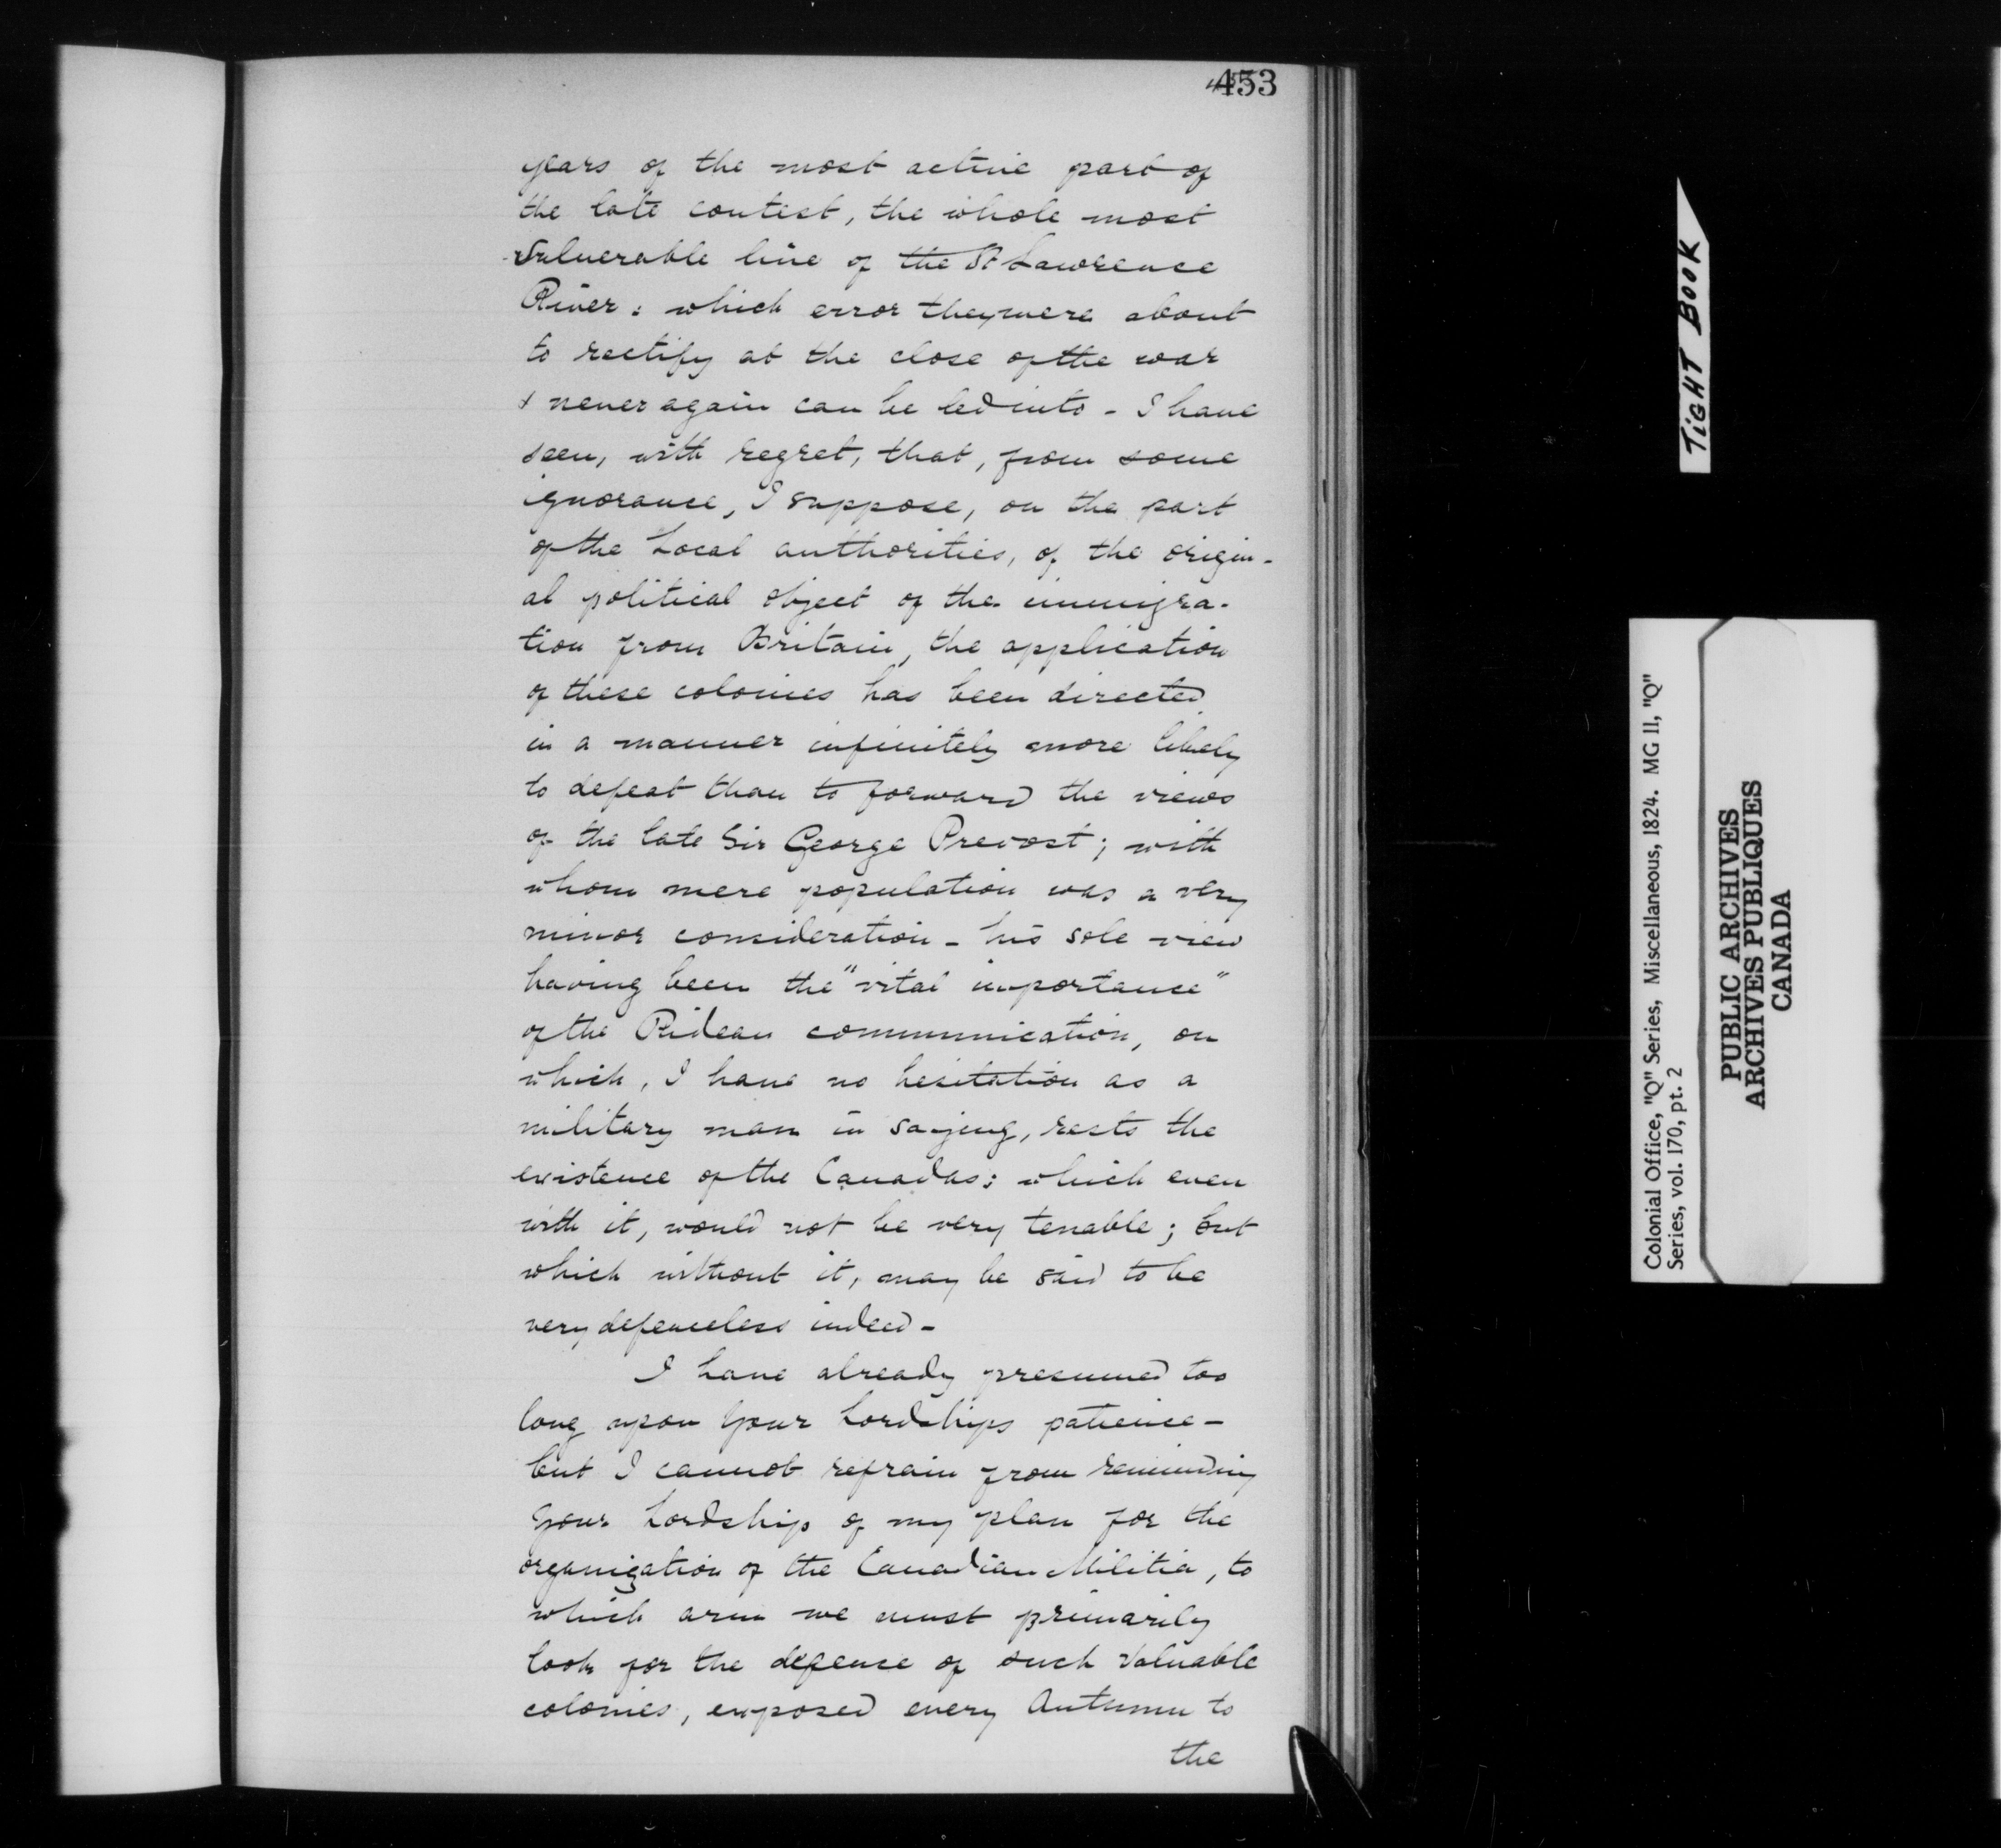 453
years of the most active part of
the late contest, the whole most
vulnerable line of the St Lawrence
River: which error they were about
to rectify at the close of the war
& never again can be led into - I have
seen, with regret, that, from some
ignorance, I suppose, on the part
of the Local authorities, of the origin-
al political object of the immigra-
tion from Britain, the application
of these colonies has been directed
in a manner infinitely more likely
to defeat than to forward the views
of the late Sir George Prevost; with
whom mere population was a very
minor consideration - his sole view
having been the "vital importance"
of the Rideau communication, on
which, I have no hesitation as a
military man in saying, rests the
existence of the Canadas: which even
with it, would not be very tenable; but
which without it, may be said to be
very defenceless indeed -
I have already presumed too
long upon Your Lordships patience -
but I cannot refrain from reminding
Your Lordship of my plan for the
organization of the Canadian Militia, to
which arm we must primarily
look for the defence of such valuable
colonies, exposed every Autumn to
the
TIGHT BOOK
Colonial Office, "Q" Series, Miscellaneous, 1824. MG 11, "Q"
Series, vol. 170, pt. 2
PUBLIC ARCHIVES
ARCHIVES PUBLIQUES
CANADA